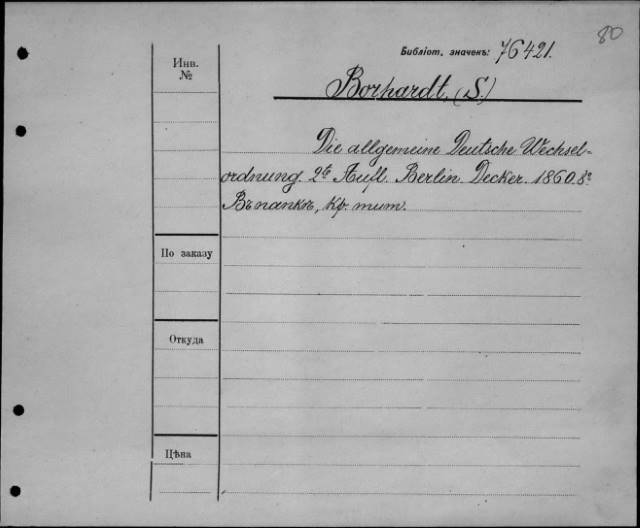 80
Библіот. значекъ: 76421.
Инв.
№
Borhardt, (S.)
Die allgemeine Deutsche Wechsel-
ordnung. 2te Aufl. Berlin. Decker. 1860. 8º
Въ папкѣ, кр. тит.
По заказу
Откуда
Цѣна